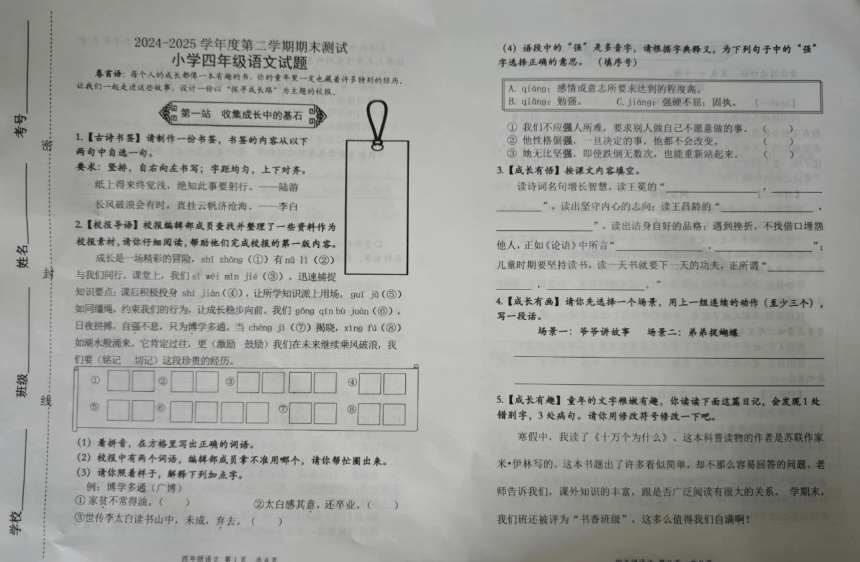 2024-2025 学年度第二学期期末测试
小学四年级语文试题
卷首语：每个人的成长都像一本有趣的书，你的童年里一定也藏着许多特别的经历。
让我们一起走进这些故事，设计一份以“探寻成长路”为主题的校报。
第一站 收集成长中的基石
1.【古诗书签】请制作一份书签，书签的内容从以下
两句中自选一句。
要求：竖排，自右向左书写；字距均匀，上下对齐。
纸上得来终觉浅，绝知此事要躬行。——陆游
长风破浪会有时，直挂云帆济沧海。——李白
2.【校报导语】校报编辑部成员查找并整理了一些资料作为
校报素材，请你仔细阅读，帮助他们完成校报的第一版内容。
成长是一场精彩的冒险，shǐ zhōng（①）有 nǔ lì（②）
与我们同行。课堂上，我们 sī wéi mǐn jié（③），迅速捕捉
知识要点；课后积极投身 shí jiàn（④），让所学知识派上用场。guī jǔ（⑤）
如同缰绳，约束我们的行为，让成长稳步向前。我们 gōng qīn bù juàn（⑥），
日夜拼搏，自强不息，只为博学多通。当 chéng jì（⑦）揭晓，xìng fú（⑧）
如潮水般涌来，它肯定过往，更（激励 鼓励）我们在未来继续乘风破浪，我
们要（铭记 切记）这段珍贵的经历。
① ② ③ ④
⑤ ⑥ ⑦ ⑧
（1）看拼音，在方格里写出正确的词语。
（2）校报中有两个词语，编辑部成员拿不准用哪个，请你帮忙圈出来。
（3）请你照着样子，解释下列加点字。
例：博学多通（广博）
①家贫不常得油。（ ） ②太白感其意，还卒业。（ ）
③世传李太白读书山中，未成，弃去。（ ）
四年级语文 第1页 共8页
考号
姓名
班级
学校
密
封
线
（4）语段中的“强”是多音字，请根据字典释义，为下列句子中的“强”
字选择正确的意思。（填序号）
A. qiáng：感情或意志所要求达到的程度高。
B. qiǎng：勉强。 C. jiàng：强硬不屈；固执。
① 我们不应强人所难，要求别人做自己不愿意做的事。（ ）
② 他性格倔强，一旦决定的事，他都不会改变。（ ）
③ 她无比坚强，即使跌倒无数次，也能重新站起来。（ ）
3.【成长有悟】按课文内容填空。
读诗词名句增长智慧。读王冕的“ ，
”，读出坚守内心的志向；读王昌龄的“ ，
”，读出洁身自好的品格；遇到挫折，不找借口埋怨
他人，正如《论语》中所言“ ， ”；
儿童时期要坚持读书，读一天书就要下一天的功夫，正所谓“
， 。”
4.【成长有画】请你先选择一个场景，用上一组连续的动作（至少三个），
写一段话。
场景一：爷爷讲故事 场景二：弟弟捉蝴蝶
5.【成长有趣】童年的文字稚嫩有趣，你读读下面这篇日记，会发现1处
错别字，3处病句。请你用修改符号修改一下吧。
寒假中，我读了《十万个为什么》，这本科普读物的作者是苏联作家
米·伊林写的。这本书题出了许多看似简单，却不那么容易回答的问题，老
师告诉我们，课外知识的丰富，跟是否广泛阅读有很大的关系。学期末，
我们班还被评为“书香班级”，这多么值得我们自满啊！